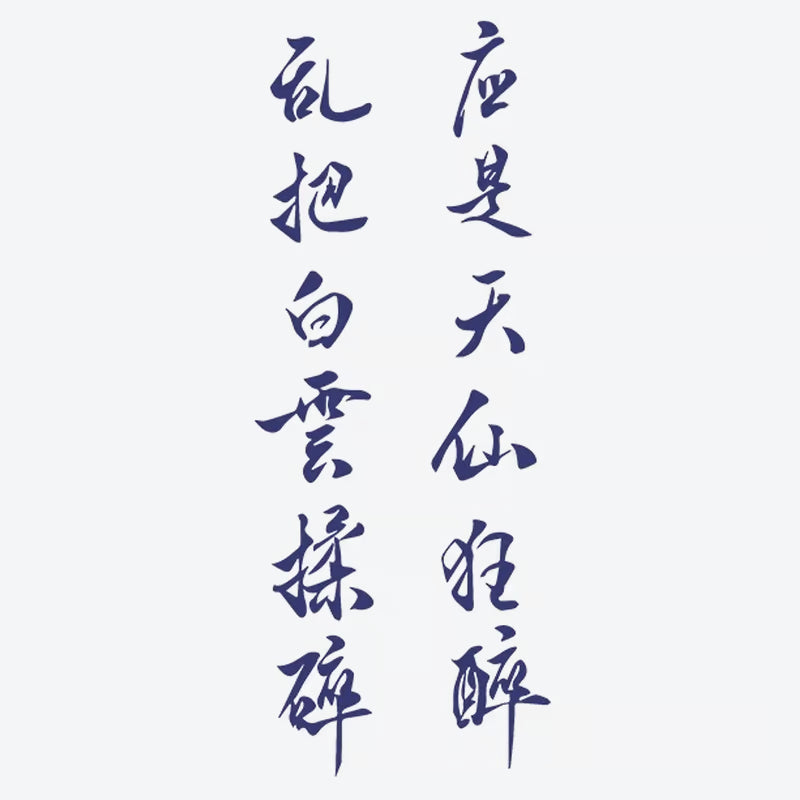 应是天仙狂醉
乱把白雲揉碎